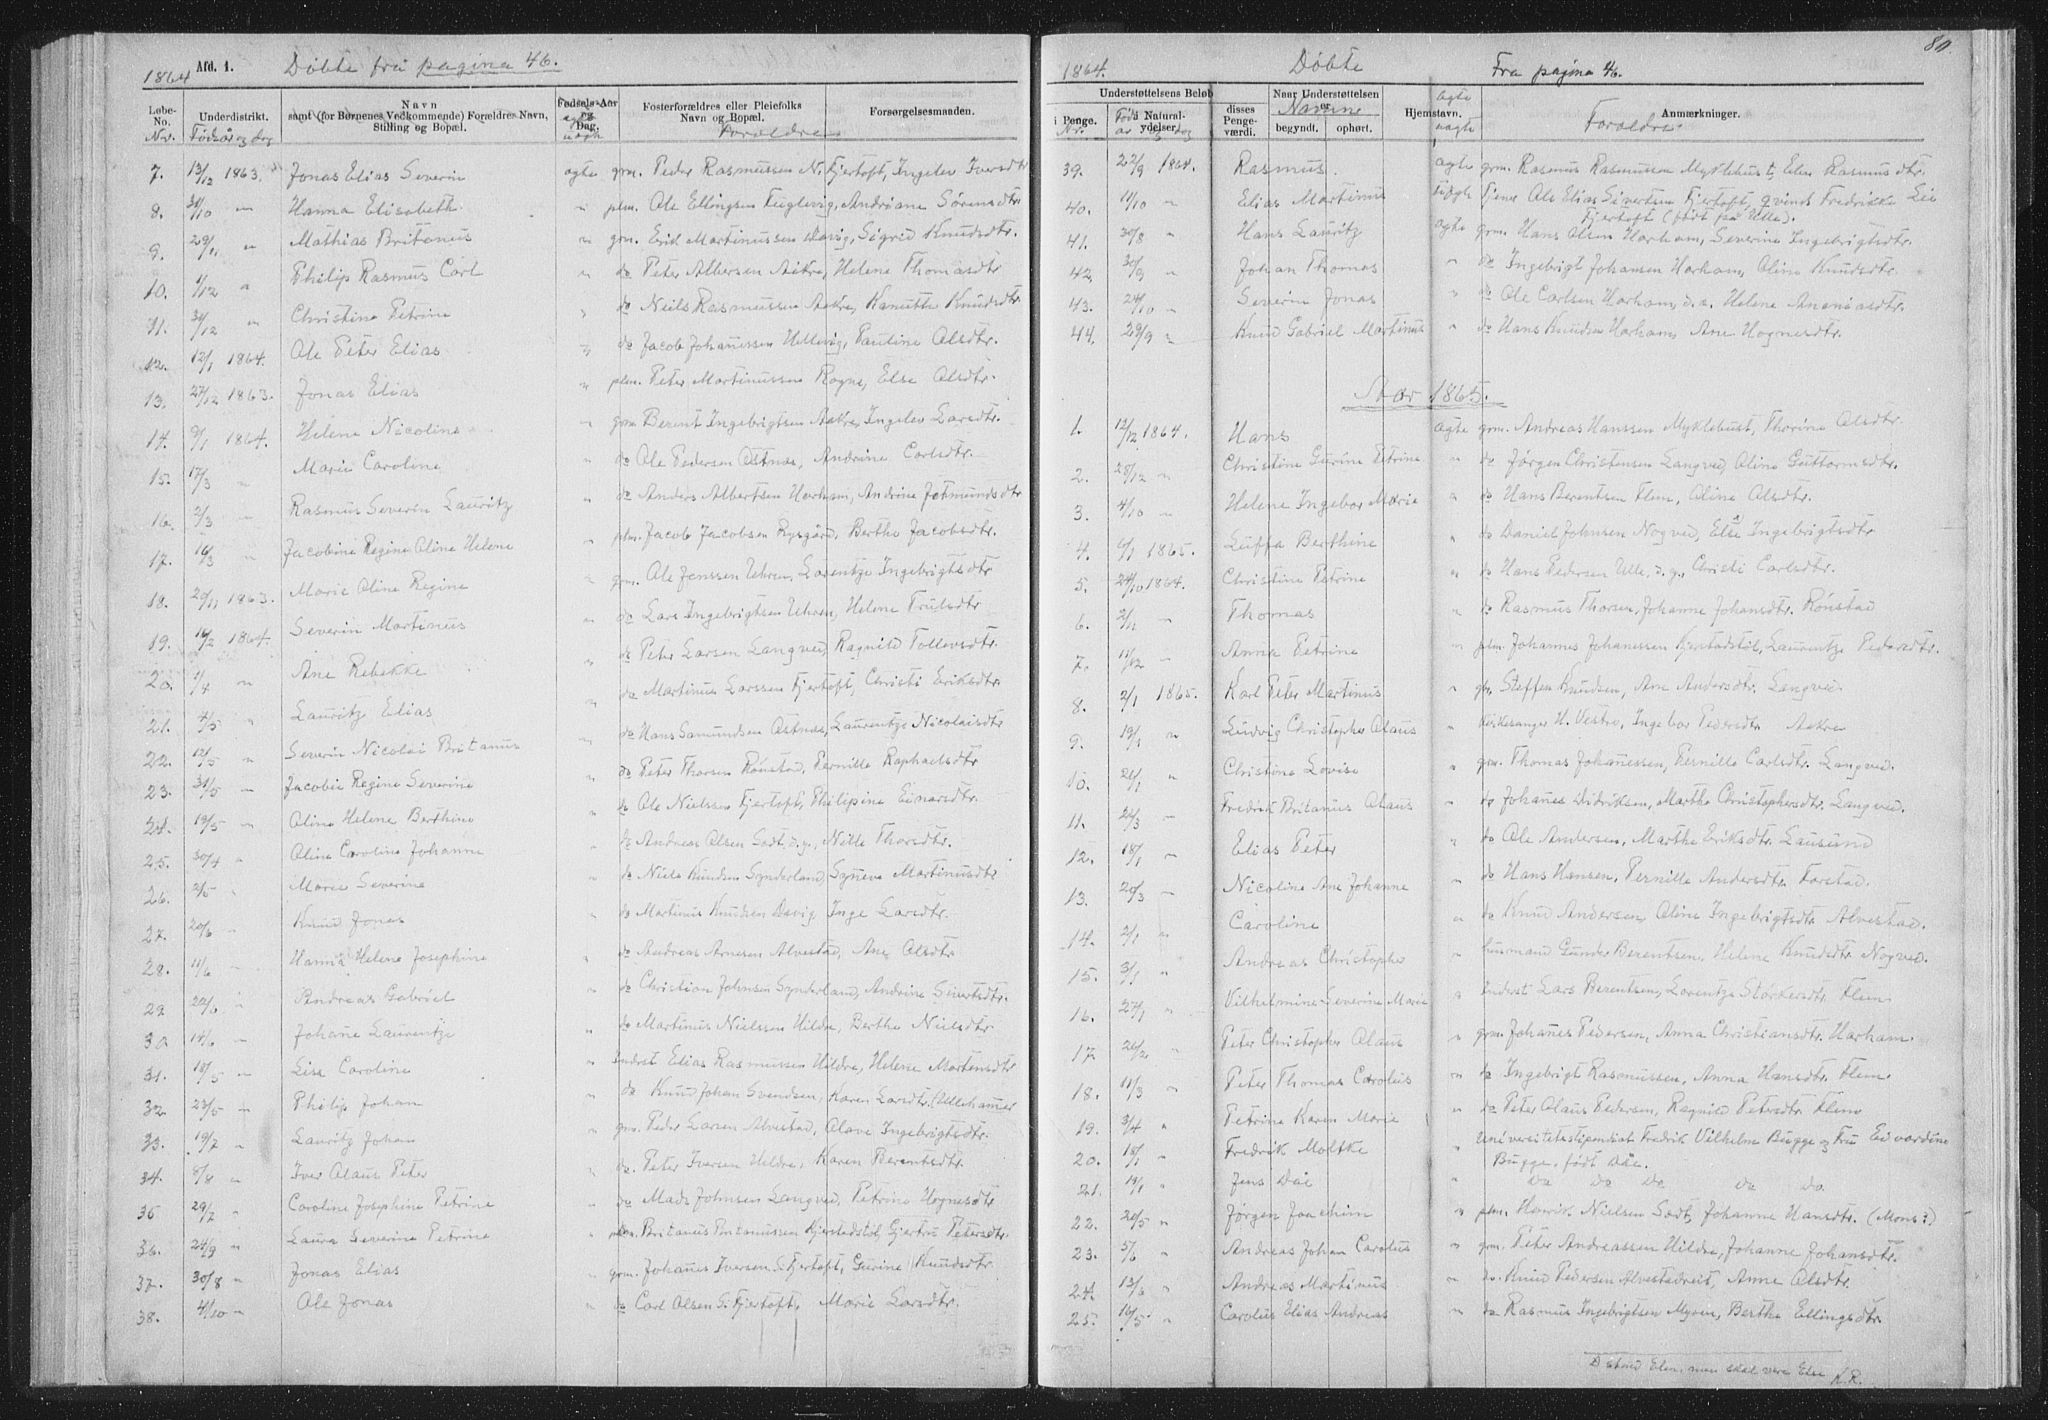 1864 Afd. 1. Døbte fra pagina 46.
Løbe-No. Underdistrikt. Navn samt (for Børnenes Vedkommende) Forældres Navn, Stilling og Bopæl. Fødsels-Aar og Dag. Fosterforældres eller Pleiefolks Navn og Bopæl. Forsørgelsesmaaden.
Nr. Fødsår og dag ægte uægte Foræeldre
7. 13/12 1863. Jonas Elias Severin ægte grm. Peder Rasmussen N. Fjertoft, Ingelev Iversdtr
8. 31/10 " Hanna Elisabeth " plm. Ole Ellingsen Fuglevig, Andriane Sørensdtr
9. 29/11 " Mathias Britanus " grm. Erik Martinussen Davig, Sigrid Knudsdtr.
10. 1/12 " Philip Rasmus Carl " do Peter Albersen Aakre, Helene Thomasdtr
11. 31/12 " Christine Petrine " do Niels Rasmussen Aakre, Kanutte Knudsdtr.
12. 12/1 1864. Ole Peter Elias " do Jacob Johanessen Hellevig, Pauline Olsdtr.
13. 27/12 1863. Jonas Elias " plm. Peter Martinussen Rogne, Else Olsdtr.
14. 9/1 1864. Helene Nicoline " grm Berent Ingebrigtsen Aakre, Ingelev Larsdtr.
15. 17/3 " Marie Caroline " do Ole Pedersen Ostnæs, Andrine Carlsdtr.
16. 2/3 " Rasmus Severin Lauritz " do Anders Albertsen Harham, Andrine Jetmundsdtr
17. 16/3 " Jacobine Regine Oline Helene " plm. Jacob Jacobsen Rysgård, Berthe Jacobsdtr.
18. 29/11 1863. Marie Oline Regine " grm. Ole Jenssen Uhren, Lorentze Ingebrigtsdtr
19. 16/2 1864. Severin Martinus " do Lars Ingebrigtsen Uhren, Helene Trulsdtr
20. 1/4 " Ane Rebekke " do Peter Larsen Langved, Ragnild Tollevsdtr.
21. 4/5 " Lauritz Elias " do Martinus Larssen Fjertoft, Christi Eriksdtr.
22. 12/5 " Severin Nicolai Britanus " do Hans Samundsen Ostnæs, Laurentze Nicolaisdtr
23. 31/5 " Jacobie Regine Severine " do Peter Thorsen Rønstad, Pernille Raphaelsdtr
24. 19/5 " Oline Helene Berthine " do Ole Nielssen Fjertoft, Philipine Einarsdtr.
25. 30/4 " Oline Caroline Johanne " do Andreas Olsen Sødt, d.y., Nille Thorsdtr.
26. 2/5 " Marie Severine " do Niels Knudsen Synderland, Syneve Martinusdtr
27. 20/6 " Knud Jonas " do Martinus Knudsen Davig, Inge Larsdtr.
28. 11/6 " Hanna Helene Josephine " do Andreas Arnesen Alvestad, Ane Olsdtr.
29 22/6 " Andreas Gabriel " do Christian Johnsen Synderland, Andrine Sivertsdtr.
30 14/6 " Johane Laurentze " do Martinus Nielssen Hildre, Berthe Nielsdtr
31. 18/5 " Lise Caroline " Inderst Elias Rasmussen Hildre, Helene Martensdtr
32. 23/5 " Philip Johan do Knud Johan Svendsen, Karen Larsdtr. (Ullehammer
33. 19/7 " Lauritz Johan " grm. Peder Larsen Alvestad, Olave Ingebrigtsdtr.
34. 8/8 " Iver Olaus Peter " do. Peter Iversen Hildre, Karen Berentsdtr.
35 29/7 " Caroline Josephine Petrine " do Mads Johnsen Langved, Petrine Hognesdtr
36. 24/9 " Laura Severine Petrine " plm. Britanus Britanussen Kjerstadstøl, Gjertrud Petersdtr.
37. 30/8 " Jonas Elias " grm. Johanes Iversen S. Fjertoft, Gurine Knudsdtr.
38. 4/10 " Ole Jonas " do Carl Olsen S. Fjertoft, Marie Larsdtr.
80.
1864. Døbte Fra pagina 46.
Understøttelsens Beløb i Penge. i Natural-ydelser. disses Penge-værdi. Naar Understøttelsen er begyndt. ophørt. Hjemstavn. Anmærkninger.
Nr. Føds år og dag Navne ægte uægte Foræeldre.
39. 22/9 1864. Rasmus. ægte grm. Rasmus Rasmussen Myklebust, Elen Rasmusdtr.
40. 11/10 " Elias Martinus uægte Tjener Ole Elias Sivertsen Fjertoft, qvinde Fredrikke Lie
Fjertoft (født på Ulle).
41. 30/8 " Hans Lauritz ægte grm. Hans Olsen Harham, Severine Ingebrigtsdtr.
42. 30/9 " Johan Thomas " do Ingebrigt Johansen Harham, Oline Knudsdtr.
43. 24/10 " Severin Jonas " do Ole Carlsen Harham, d.æ. Helene Ananiasdtr.
44. 29/9 " Knud Gabriel Martinus " do Hans Knudsen Harham, Ane Hognesdtr.
Aar 1865.
1. 12/12 1864. Hans ægte grm. Andreas Hanssen Myklebust, Thorine Olsdtr.
2. 28/12 " Christine Gurine Petrine " do Jørgen Christensen Langved, Oline Guttormsdtr.
3. 4/10 " Helene Ingebor Marie " do Hans Berentsen Flem, Oline Olsdtr.
4. 6/1 1865. Luffa Berthine " do Daniel Johnsen Nogved, Else Ingebrigtsdtr
5. 24/10 1864. Christine Petrine " do Hans Pedersen Ulle, d.y., Christi Carlsdtr.
6. 2/11 " Thomas " do Rasmus Thorsen, Johanne Johansdtr. Rønstad
7. 11/12 " Anna Petrine " plm. Johannes Johanessen Kjerstadstøl, Laurentze Pedersdtr.
8. 2/1 1865. Karl Peter Martinus " gbr. Steffen Knudsen, Ane Andersdtr. Langved
9. 19/1 " Ludvig Christopher Olaus " Kirkesanger H. Vestre, Ingebor Pedersdtr Aakre
10. 21/1 " Christine Lovise " grm. Thomas Johanessen, Pernille Carlsdtr. Langved.
11. 26/3 " Fredrik Britanus Olaus " do Johanes Didriksen, Marthe Christophersdtr. Langved.
12. 18/1 " Elias Peter " do Ole Andersen, Marthe Eriksdtr. Lausund
13. 20/3 " Nicoline Ane Johanne " do Hans Hansen, Pernille Andersdtr. Farstad.
14. 2/1 " Caroline " do Knud Andersen, Oline Ingebrigtsdtr Alvestad.
15. 3/1 " Andreas Christopher " husmand Gunder Berentsen, Helene Knudsdtr Nogved.
16. 27/1 " Vilhelmine Severine Marie " Inderst Lars Berentsen, Lorentze Størkersdtr. Flem
17 26/2 " Peter Christopher Olaus " grm. Johanes Pedersen, Anna Christiansdtr. Harham.
18. 11/3 " Peter Thomas Carolus " do Ingebrigt Rasmussen, Anna Hansdtr. Flem
19. 3/4 " Petrine Karen Marie " do Peter Olaus Pedersen, Ragnild Petersdtr. Flem
20. 18/1 " Fredrik Moltke " Universitetsstipendiat Fredrik Vilhelm Bugge og Fru Edvardine
Bugge, født Dåe.
21. 19/1 " Jens Dåe " Do Do Do Do Do.
22. 20/5 " Jørgen Joachim " plm. Henrik Nielsen Sødt, Johanne Hansdtr. (Mons?)
23. 5/6 " Andreas Johan Carolus " grm. Peter Andreassen Hildre, Johanne Johansdtr.
24. 13/6 " Andreas Martinus " do. Knud Pedersen Alvestadreit, Anne Olsdtr.
25. 16/5 " Carolus Elias Andreas " do Rasmus Ingebrigtsen Myren, Berthe Ellingsdtr.
stod Elen, men skal være Else K.R.